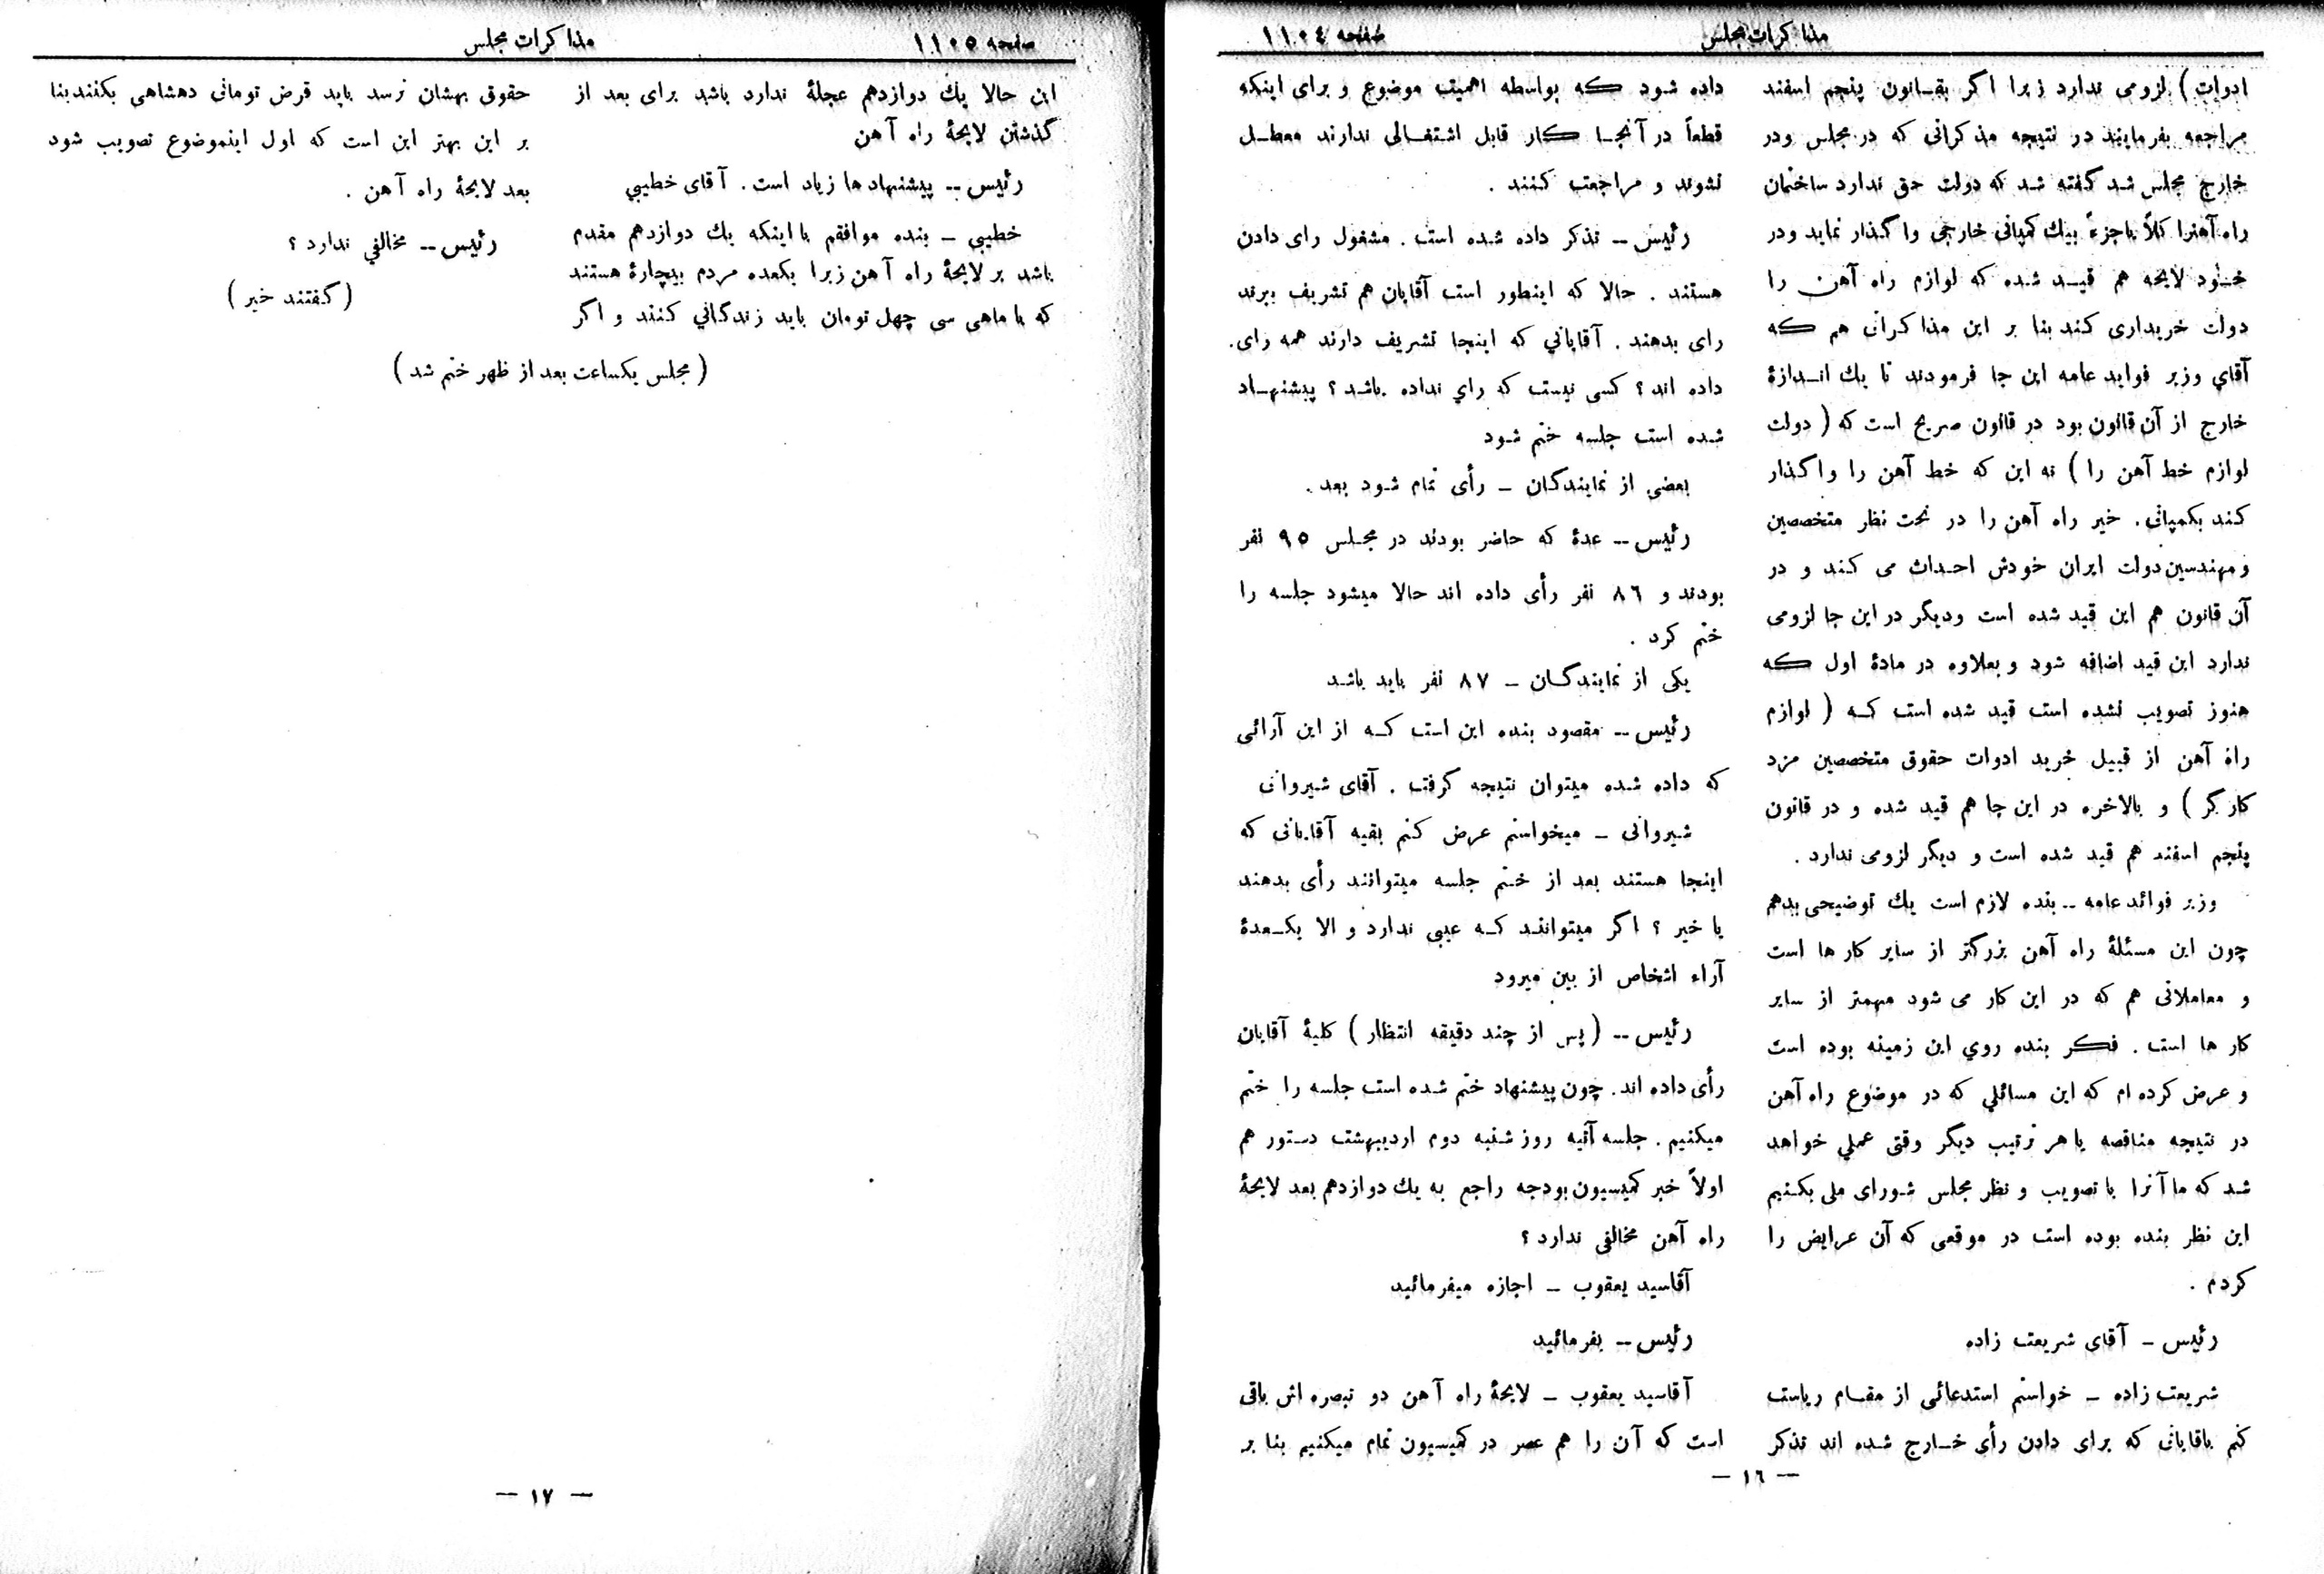 مذاکرات مجلس
صفحه ۱۱۰۴
ادوات ) لزومی ندارد زیرا اگر بقانون پنجم اسفند
مراجعه بفرمایند در نتیجه مذکراتی که در مجلس ودر
خارج مجلس شد گفته شد که دولت حق ندارد ساختمان
راه آهنرا کلاً یاجزءً بیك کمپانی خارجی واگذار نماید ودر
خود لایحه هم قید شده که لوازم راه آهن را
دولت خریداری کند بنا بر این مذاکراتی هم که
آقاي وزیر فواید عامه این جا فرمودند تا یك اندازۀ
خارج از آن قانون بود در قانون صریح است که ( دولت
لوازم خط آهن را ) نه این که خط آهن را واگذار
کند بکمپانی . خیر راه آهن را در تحت نظر متخصصین
ومهندسین دولت ایران خودش احداث می کند و در
آن قانون هم این قید شده است ودیگر در این جا لزومی
ندارد این قید اضافه شود و بعلاوه در مادۀ اول که
هنوز تصویب نشده است قید شده است که ( لوازم
راه آهن از قبیل خرید ادوات حقوق متخصصین مزد
کارگر ) و بالاخره در این جا هم قید شده و در قانون
پنجم اسفند هم قید شده است و دیگر لزومی ندارد .
وزیر فوائد عامه -- بنده لازم است یك توضیحی بدهم
چون این مسئلۀ راه آهن بزرگتر از سایر کار ها است
و معاملاتی هم که در این کار می شود مهمتر از سایر
کار ها است . فکر بنده روي این زمینه بوده است
و عرض کرده ام که این مسائلي که در موضوع راه آهن
در نتیجه مناقصه یا هر ترتیب دیگر وقتی عملي خواهد
شد که ما آنرا با تصویب و نظر مجلس شورای ملی بکنیم
این نظر بنده بوده است در موقعی که آن عرایض را
کردم .
رئیس - آقای شریعت زاده
شریعت زاده - خواستم استدعائی از مقام ریاست
کنم باقایانی که برای دادن رأی خارج شده اند تذکر
داده شود که بواسطه اهمیت موضوع و برای اینکه
قطعاً در آنجا کار قابل اشتغالی ندارند معطل
نشوند و مراجعت کنند .
رئیس -- تذکر داده شده است . مشغول رای دادن
هستند . حالا که اینطور است آقایان هم تشریف ببرند
رای بدهند . آقایاني که اینجا تشریف دارند همه رای
داده اند ؟ کسی نیست که راي نداده باشد ؟ پیشنهاد
شده است جلسه ختم شود
بعضی از نمایندگان - رأی تمام شود بعد .
رئیس -- عدۀ که حاضر بودند در مجلس ۹۵ نفر
بودند و ۸۶ نفر رأی داده اند حالا میشود جلسه را
ختم کرد .
یکی از نمایندگان - ۸۷ نفر باید باشد
رئیس -- مقصود بنده این است که از این آرائی
که داده شده میتوان نتیجه گرفت . آقای شیروانی
شیروانی - میخواستم عرض کنم بقیه آقایانی که
اینجا هستند بعد از ختم جلسه میتوانند رأی بدهند
یا خیر ؟ اگر میتوانند که عیبی ندارد و الا یکعدۀ
آراء اشخاص از بین میرود
رئیس -- ( پس از چند دقیقه انتظار ) کلیۀ آقایان
رأی داده اند . چون پیشنهاد ختم شده است جلسه را ختم
میکنیم . جلسه آتیه روز شنبه دوم اردیبهشت دستور هم
اولاً خبر کمیسیون بودجه راجع به یك دوازدهم بعد لایحۀ
راه آهن مخالفی ندارد ؟
آقاسید یعقوب - اجازه میفرمائید
رئیس -- بفرمائید
آقاسید یعقوب - لایحۀ راه آهن دو تبصره اش باقی
است که آن را هم عصر در کمیسیون تمام میکنیم بنا بر
— ۱۶ —
صفحه ۱۱۰۵
مذاکرات مجلس
این حالا یك دوازدهم عجلۀ ندارد باشد برای بعد از
گذشتن لایحۀ راه آهن
رئیس -- پیشنهاد ها زیاد است . آقای خطیبي
خطیبي - بنده موافقم با اینکه یك دوازدهم مقدم
باشد بر لایحۀ راه آهن زیرا یکعده مردم بیچارۀ هستند
که با ماهی سی چهل تومان باید زندگاني کنند و اگر
حقوق بهشان نرسد باید قرض تومانی دهشاهی بکنند بنا
بر این بهتر این است که اول اینموضوع تصویب شود
بعد لایحۀ راه آهن .
رئیس -- مخالفي ندارد ؟
( گفتند خیر )
( مجلس یکساعت بعد از ظهر ختم شد )
— ۱۷ —